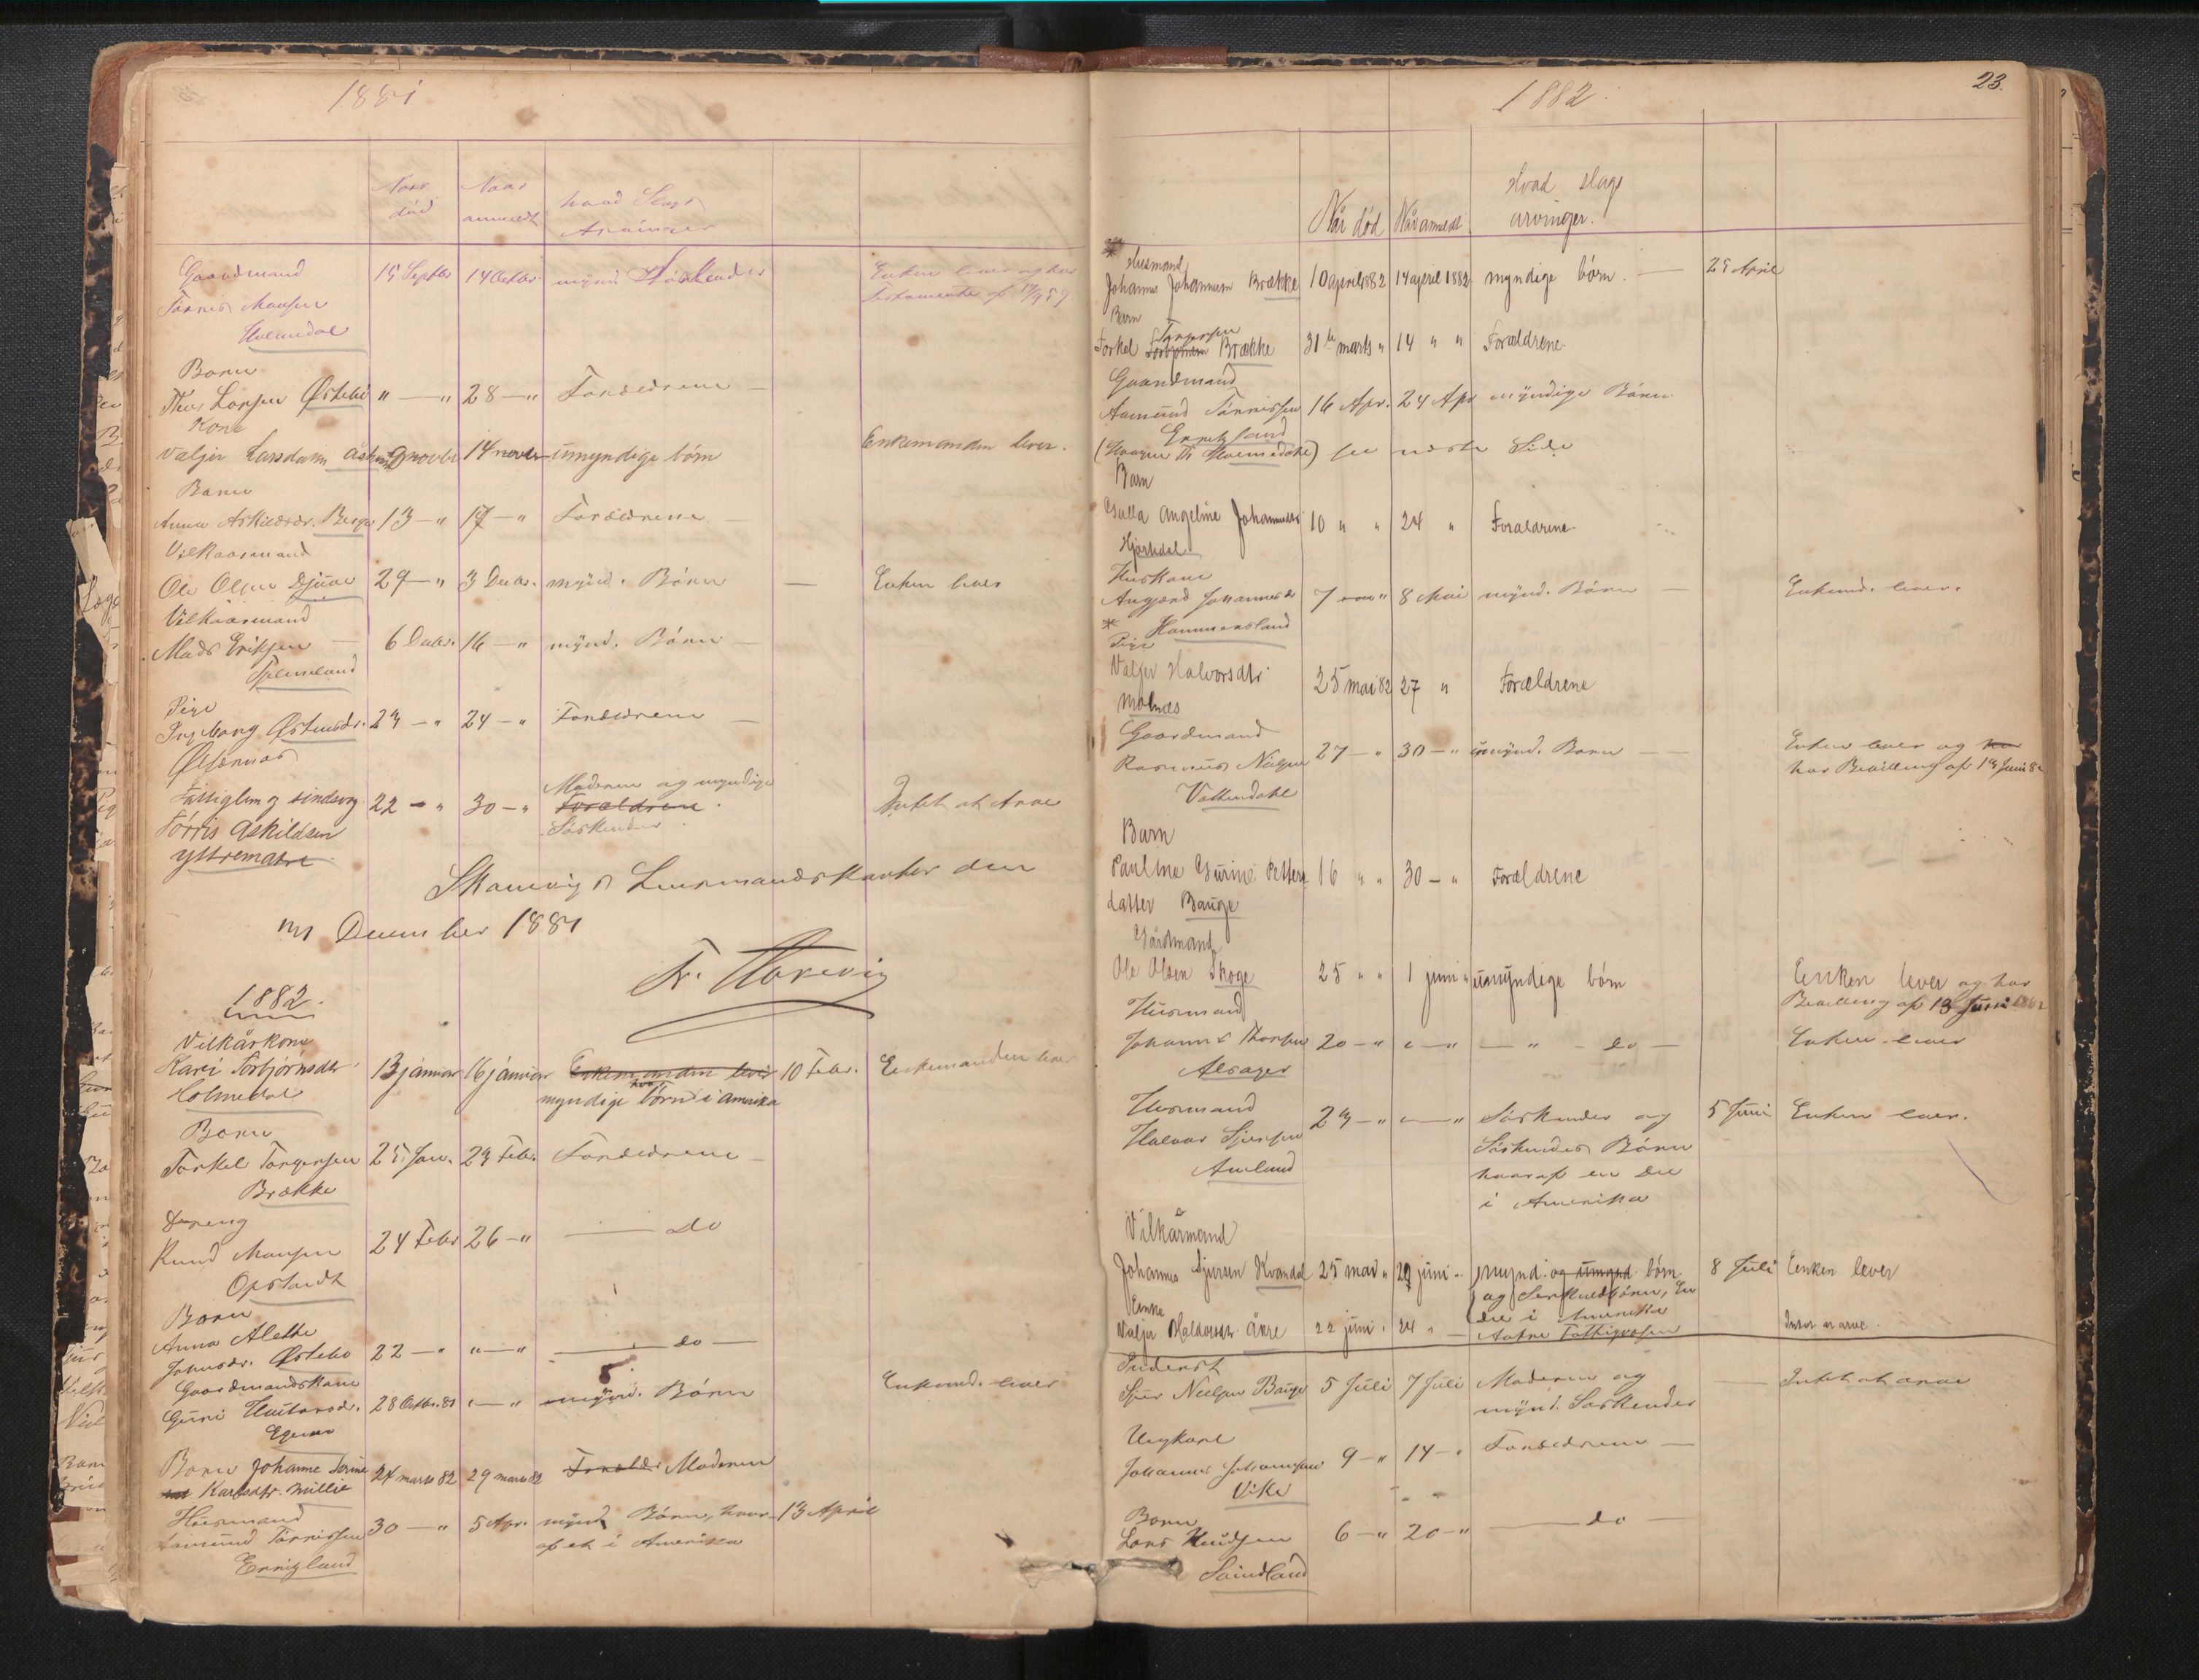 1881
Naar død
Naar anmeldt
hvad Slags Arvinger
Gaardmand
Tørris Monsen
Holmedal
15 Septbr
14 Octbr
mynd. Søskender
Enken lever og har
Testamente af
Barn
Thor Larsen Østebø
" — "
28 — "
Forældrene —
Kone
Valjer Larsdatter
9 novbr
14 novbr
umyndige børn
Enkemanden lever.
Barn
Anna Askildsdr. Berge
13 — "
17 — "
Forældrene —
Vilkaarmand
Ole Olsen Djuve
29 — "
3 Decbr.
mynd. Børn —
Enken lever
Vilkaarmand
Mads Eriksen —
Fjelmeland
6 Decbr.
16 — "
mynd. Børn —
Pige
Ingeborg Østensdr.
Ølfarnæs
23 — "
24 — "
Forældrene —
Fattiglem og sindsvag
Tørris Askildsen
yttrematre
22 — "
30 — "
Moderen og myndige
Forældrene.
Søskender.
Intet at Arve
Skonevig Lensmandskontor den
31 December 1881
Fr. Horevig
1882.
Vilkårkone
Kari Torbjørnsdtr
Holmedal
13 januar
16 januar
Enkemanden lever
myndige børn i Amerika
10 Febr.
Enkemanden lever
Barn
Torkel Torgersen
Brække
25 Jan.
23 Febr.
Forældrene —
Dreng
Knud Monsen
Opstadt
24 Febr
26 — "
— do
Barn
Anna Alette
Johnsdr. Østebø
22 — "
" — "
— do —
Gaardmandskone
Guri Guttormsdr.
Egenes
28 Octbr. 81
" — "
mynd. Børn
Enkemd. lever
Barn Johanne Serine
Karlsdtr. Millie
24 marts 82
29 marts 82
Forældr. Moderen
Husmand
Aamund Tørrissen
Enrigland
30 — "
5 Apr.
mynd. Børn, hvor-
af et i Amerika
13 April
1882.
23.
Når død
Når anmeldt.
Hvad slags
arvinger.
* Husmand
Johannes Johannessen Brække
10 april 1882
14 april 1882
myndige børn. —
25 April
Barn
Torgersen
Torkel Torbjørnsen Brække
31te marts "
14 " "
Forældrene
Gaardmand
Aamund Tørrissen
Enrigland
16 Apr.
24 Apr
myndige Børn
(Haagen Ts Holmedahl) see næste Side
Barn
Gulla Angeline Johannesdtr
Hjortedal
10 " "
24 "
Forældrene
Huskone
Angjærd Johannesdr
* Hammersland
7 — "
8 Mai
mynd. Børn —
Enkemd. lever.
Pige
Valjer Halvorsdtr.
Molnes
25 mai 82
27 "
Forældrene
Gaardmand
Rasmus Nilsen
Vattendahl
27 — "
30 — "
umynd. Børn — —
Enken lever og har
har Bevilling af 13 Juni 82
Barn
Pauline Gurine Petters
datter Bauge
16 " "
30 — "
Forældrene
Gårdmand
Ole Olsen Skoge
25 " "
1 juni "
umyndige børn
Enken lever og har
Bevilling af 13 Juni 1882
Husmand
Johannes Thorsen
Alsager
20 — "
" — "
— " — do —
Enken lever
Husmand
Halvor Sjursen
Amland
23 — "
" — "
Søskender og
Søskendes Børn
hvoraf en Del
i Amerika
5 Juni
Enken lever.
Vilkårmand
Johannes Sjursen Kvandal
25 mai "
20 juni "
mynd. og umynd børn
og Søskendbørn, En
Del i Amerika
8 Juli
Enken lever
Enke
Valjer Haldorsdtr Åkre
22 juni "
24 " —
Aakre Fattigvæsen
Intet at arve.
Inderst
Sjur Nielsen Bauge
5 Juli
7 Juli
Moderen og
mynd. Søskender
— Intet at arve
Ungkarl
Johannes Johannesen
Vike
9 — "
14 — "
Forældrene —
Barn
Lars Knudsen
Saindland
6 — "
20 — "
— do —